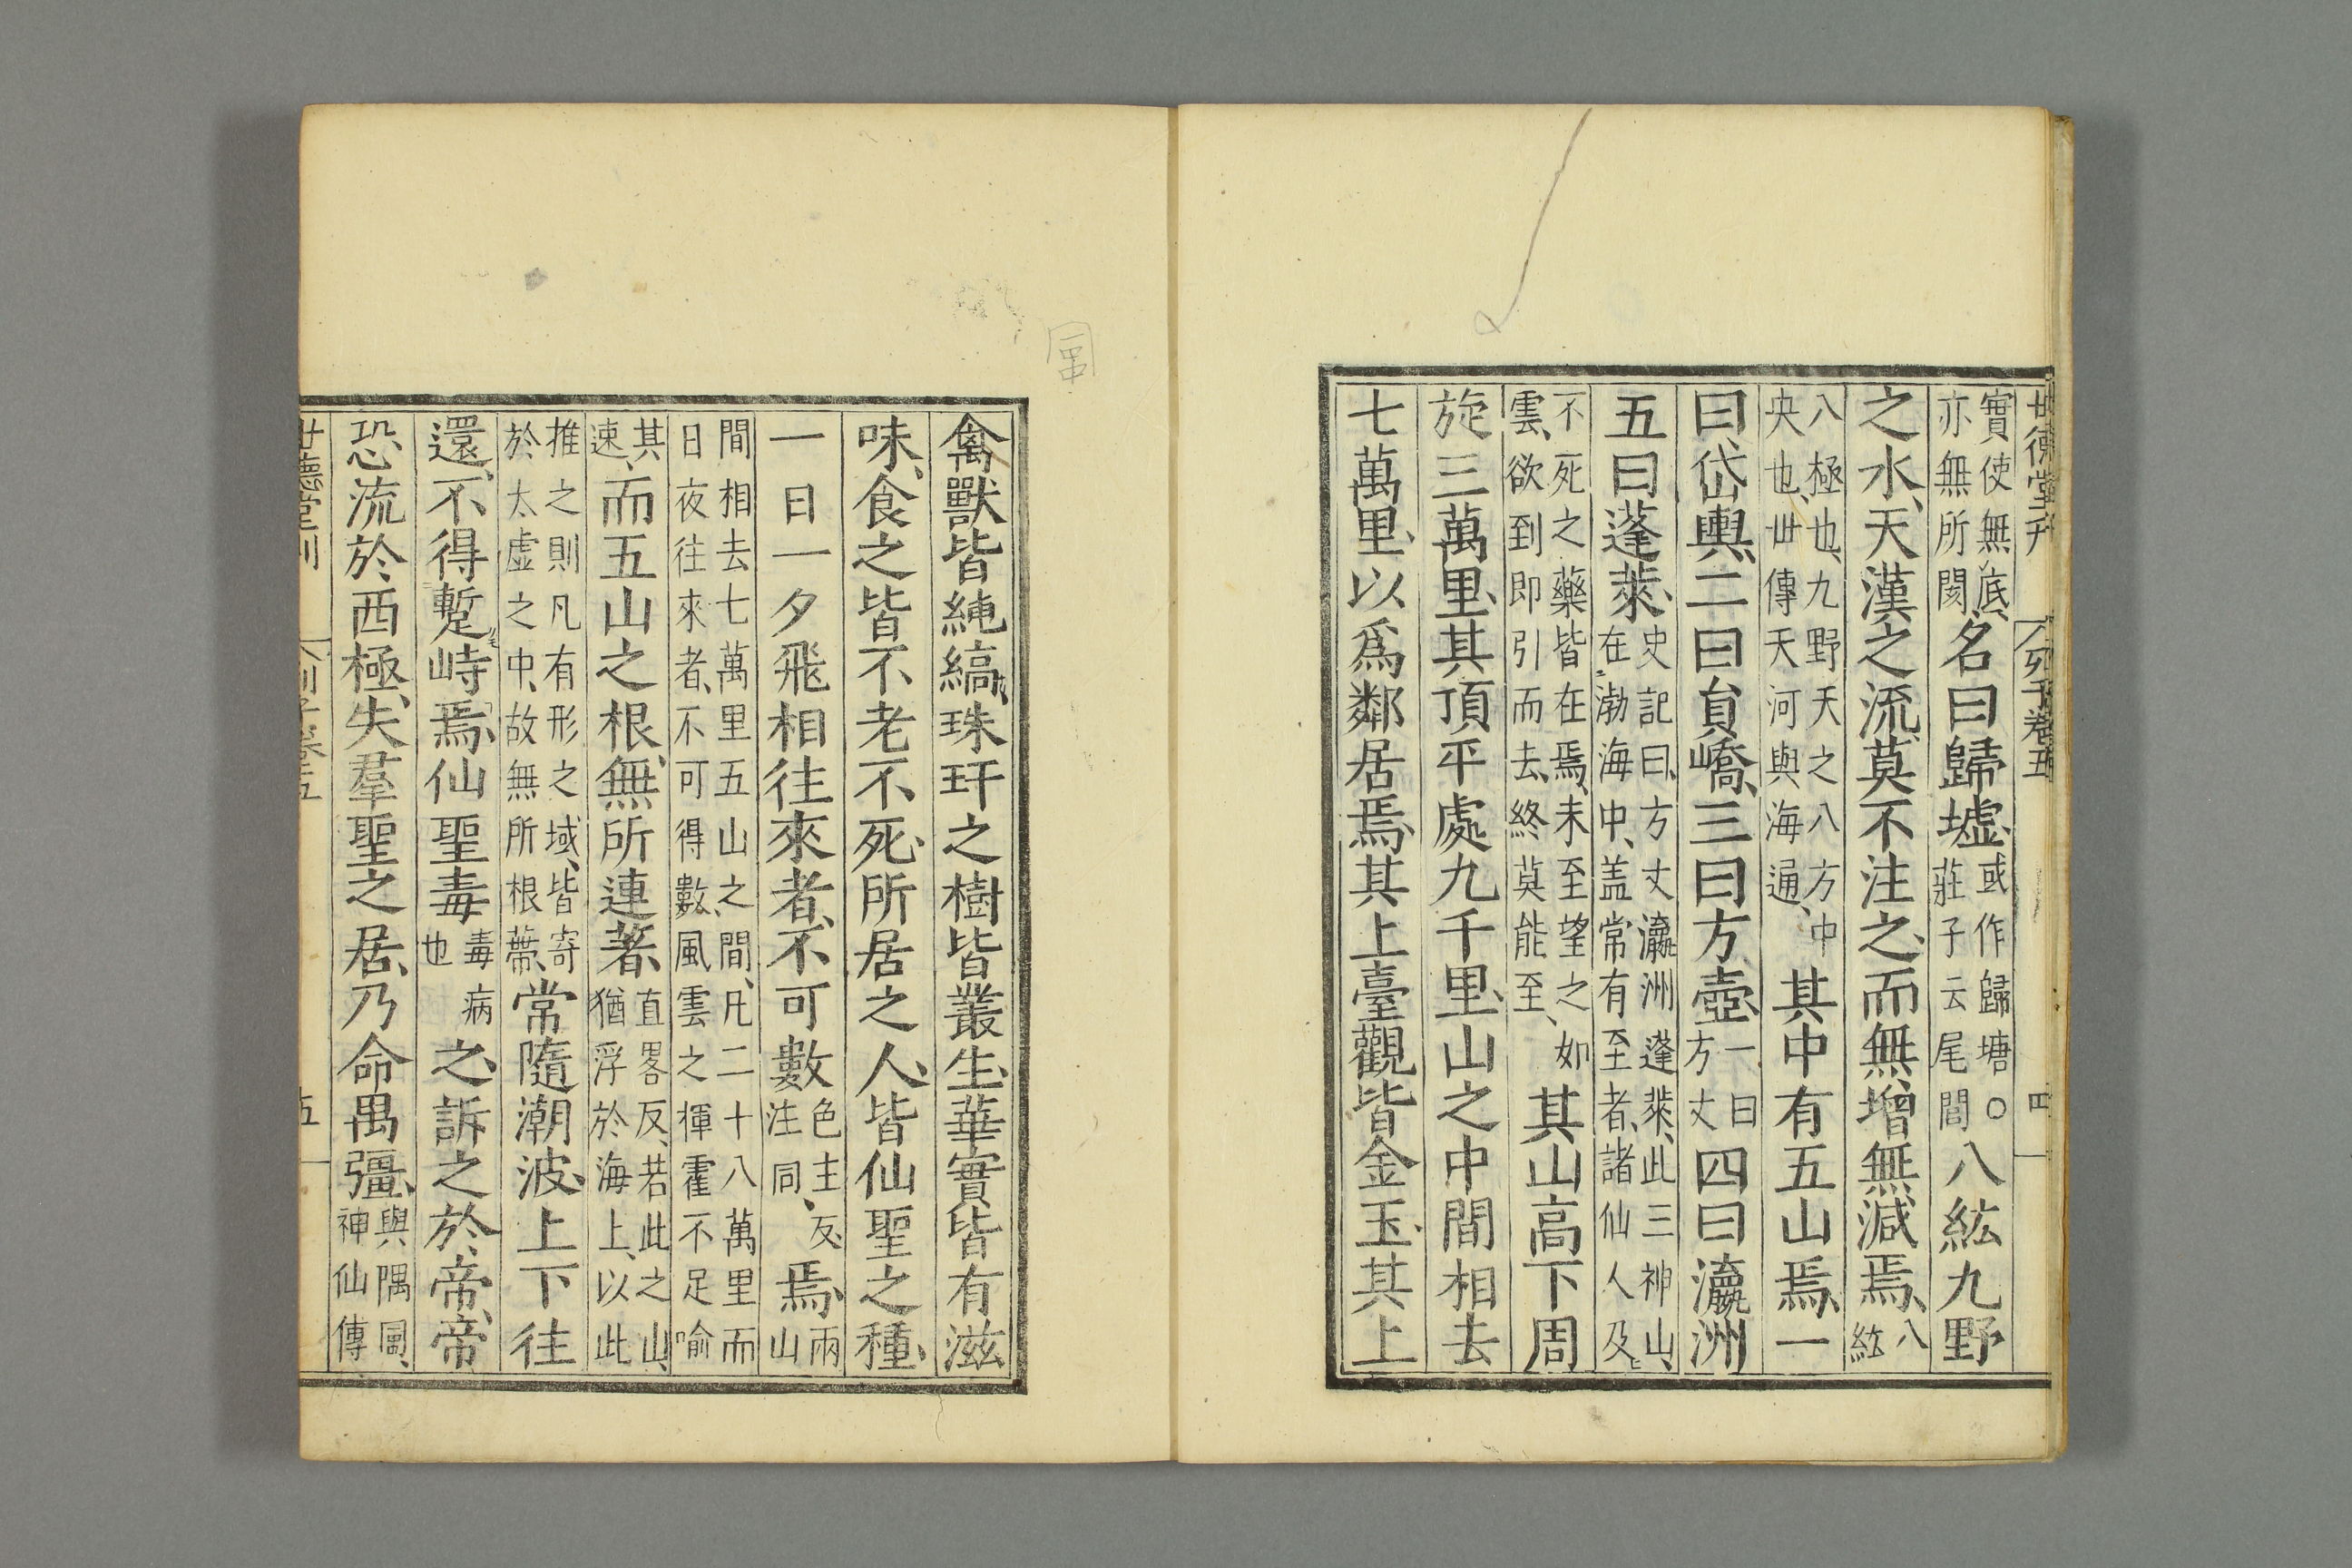 世德堂刊 列子卷五 四
實使無底、亦無所閡、名曰歸墟、或作歸塘○莊子云尾閭八紘九野
之水、天漢之流、莫不注之、而無增無減焉、八紘
八極也、九野天之八方中央也、世傳天河與海通、其中有五山焉、一
曰岱輿、二曰員嶠、三曰方壺、一曰方丈四曰瀛洲
五曰蓬萊、史記曰、方丈瀛洲蓬萊、此三神山、在渤海中、盖常有至者、諸仙人及
不死之藥皆在焉、未至望之如雲、欲到即引而去、終莫能至、其山高下周
旋三萬里、其頂平處九千里、山之中間相去
七萬里、以爲鄰居焉、其上臺觀皆金玉、其上
禽獸皆純縞、珠玕之樹皆叢生、華實皆有滋
味、食之皆不老不死、所居之人、皆仙聖之種、
一日一夕飛相往來者、不可數色主反、注同、焉、兩山
間相去七萬里五山之間、凡二十八萬里而日夜往來者、不可得數、風雲之揮霍不足喻
其速、而五山之根、無所連著、直畧反、若此之山、猶浮於海上、以此
推之則凡有形之域、皆寄於太虛之中、故無所根蔕、常隨潮波、上下往
還、不得蹔峙焉、仙聖毒毒病也之、訴之於帝、帝
恐流於西極、失羣聖之居、乃命禺彊、與隅同、神仙傳
世德堂刊 列子卷五 五